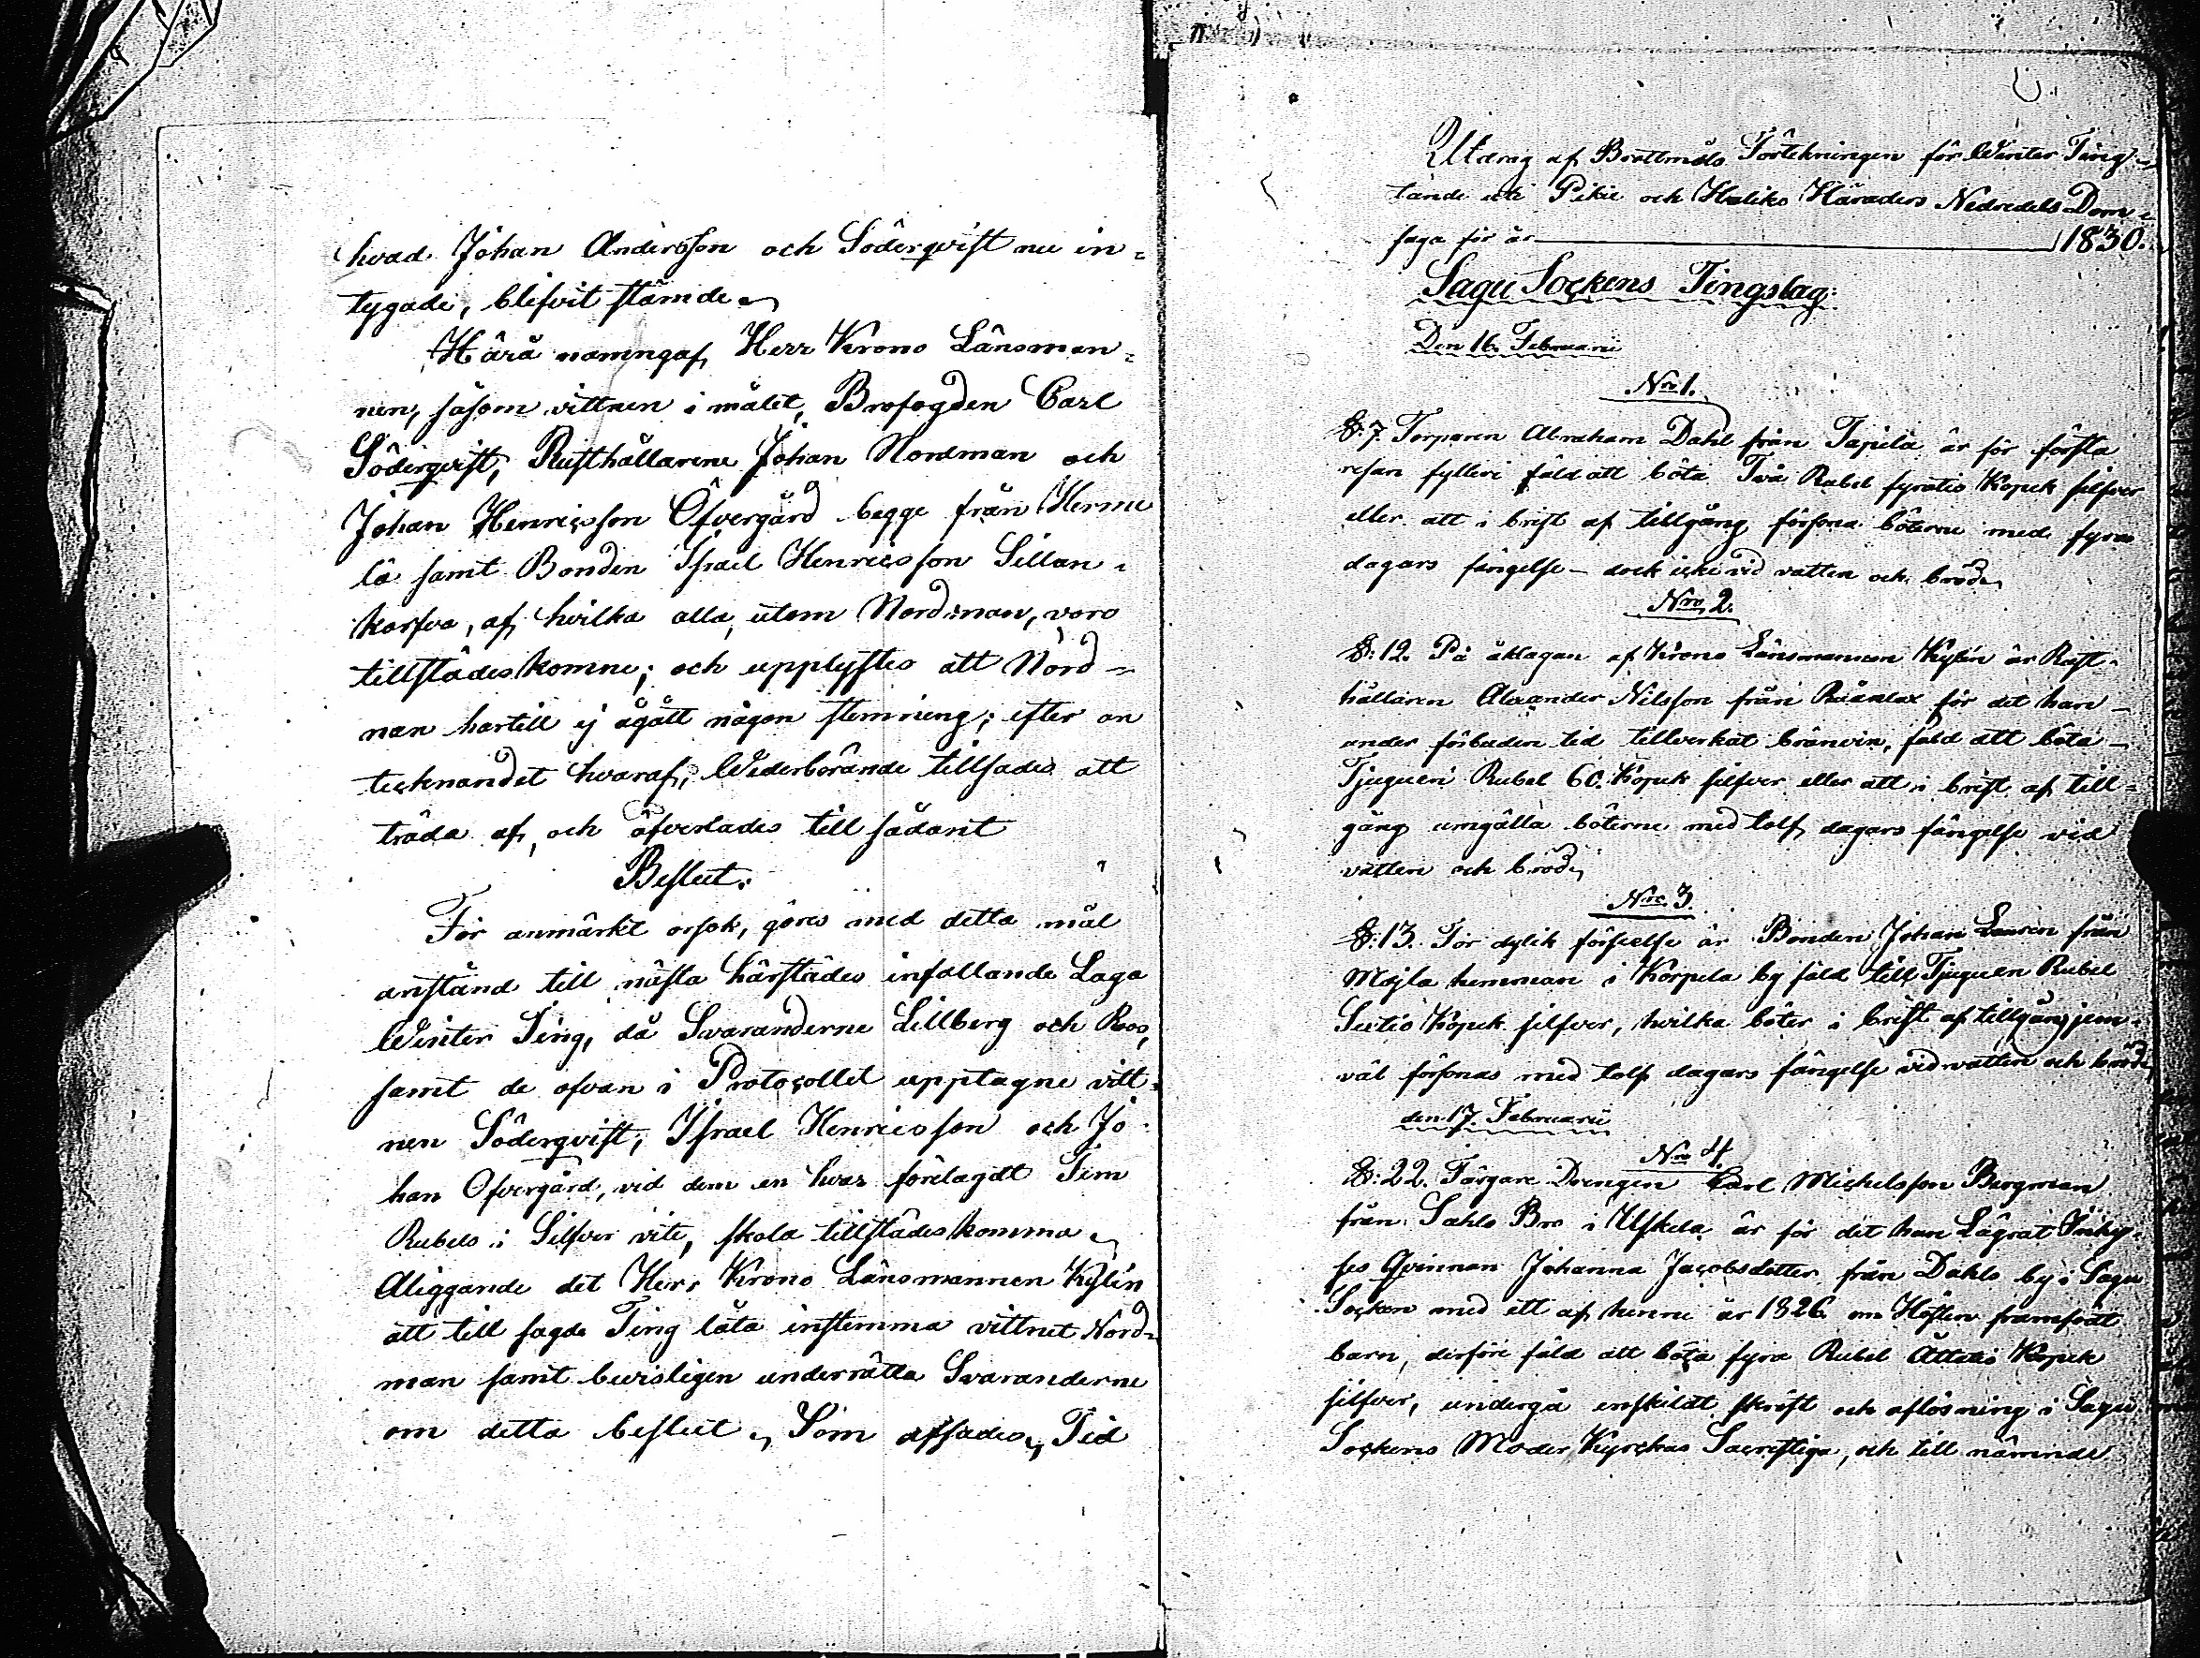 hvad Johan Andersson och Söderqvist nu in=
tygade, blifvit stämde.
Härå namngaf Herr Krono Länsman=
nen, såsom vittnen i målet, Brofogden Carl
Söderqvist, Rusthållarene Johan Nordman och
Johan Henricsson Öfvergård begge från Herme
lä samt Bonden Israel Henricsson Sillan=
korfva, af hvilka alla, utom Nordman, voro
tillstädeskomne; och upplystes att Nord=
man hartill ej ägått någon stemning; efter an
tecknandet hvaraf, Wederbörande tillsades att
träda af, och öfverlades till sådant
Beslut:
För anmärkt orsak, göres med detta mål
anstånd till nästa härstädes infallande Laga
Winter Ting, då Svaranderne Lillberg och Roos,
samt de ofvan i Protocollet upptagne vitt=
nen Söderqvist, Israel Henricsson och Jo=
han Öfvergård, vid dem en hvar förelagdt Fem
Rubels i Silfver vite, skola tillstädeskomma
Åliggande det Herr Krono Länsmannen Kylén
att till sagde Ting låta instemma vittnet Nord=
man samt bevisligen underrätta Svaranderne
om detta beslut. Som afsades. Tid
Utdrag af Brottmåls Förtekningen för Winter Ting=
tande uti Pikie och Haliko Häraders Nedredels Dom=
saga för år 1830.
Sagu Sockens Tingslag:
Den 16. Februarii
Nro 1.
§: 7. Torparen Abraham Dahl från Tapila är för första
resan fylleri fäld att böta Två Rubel fyratio Kopek silfver
eller att i brist af tillgång försona böterne med fyra
dagars fängelse - dock icke vid vatten och bröd
Nro 2.
§: 12. På åklagan af Krono Länsmannen Kylén är Rust=
hållaren Alexander Nilsson från för det han
under förbuden tid tillverkat bränvin, fäld att böta
Tjuguen Rubel 60. Kopek silfver eller att i brist af till=
gång umgälla böterne med tolf dagars fängelse vid
vatten och bröd
Nro 3.
§: 13. För dylik förseelse är Bonden Johan Laurén från
Mojla hemman i Korpela by fäld till Tjuguen Rubel
Sextio Kopek silfver, hvilka böter i brist af tillgång jem=
väl försonas med tolf dagars fängelse vid vatten och bröd
den 17. Februarii
Nro 4.
§: 22. Färgare Drengen Carl Michelsson Bergman
från Sahlo Bro i Uskela är för det han Lägrat Inhy=
ses Qvinnan Johanna Jacobsdotter från Dahls by i Sagu
Socken med ett af henne år 1826 om Hösten framfödt
barn, derföre fäld att böta fyra Rubel Åttatio Kopek
silfver, undergå enskildt skrift och aflösning i Sagu
Sockens Moder Kyrckas Sacristiga, och till nämnde